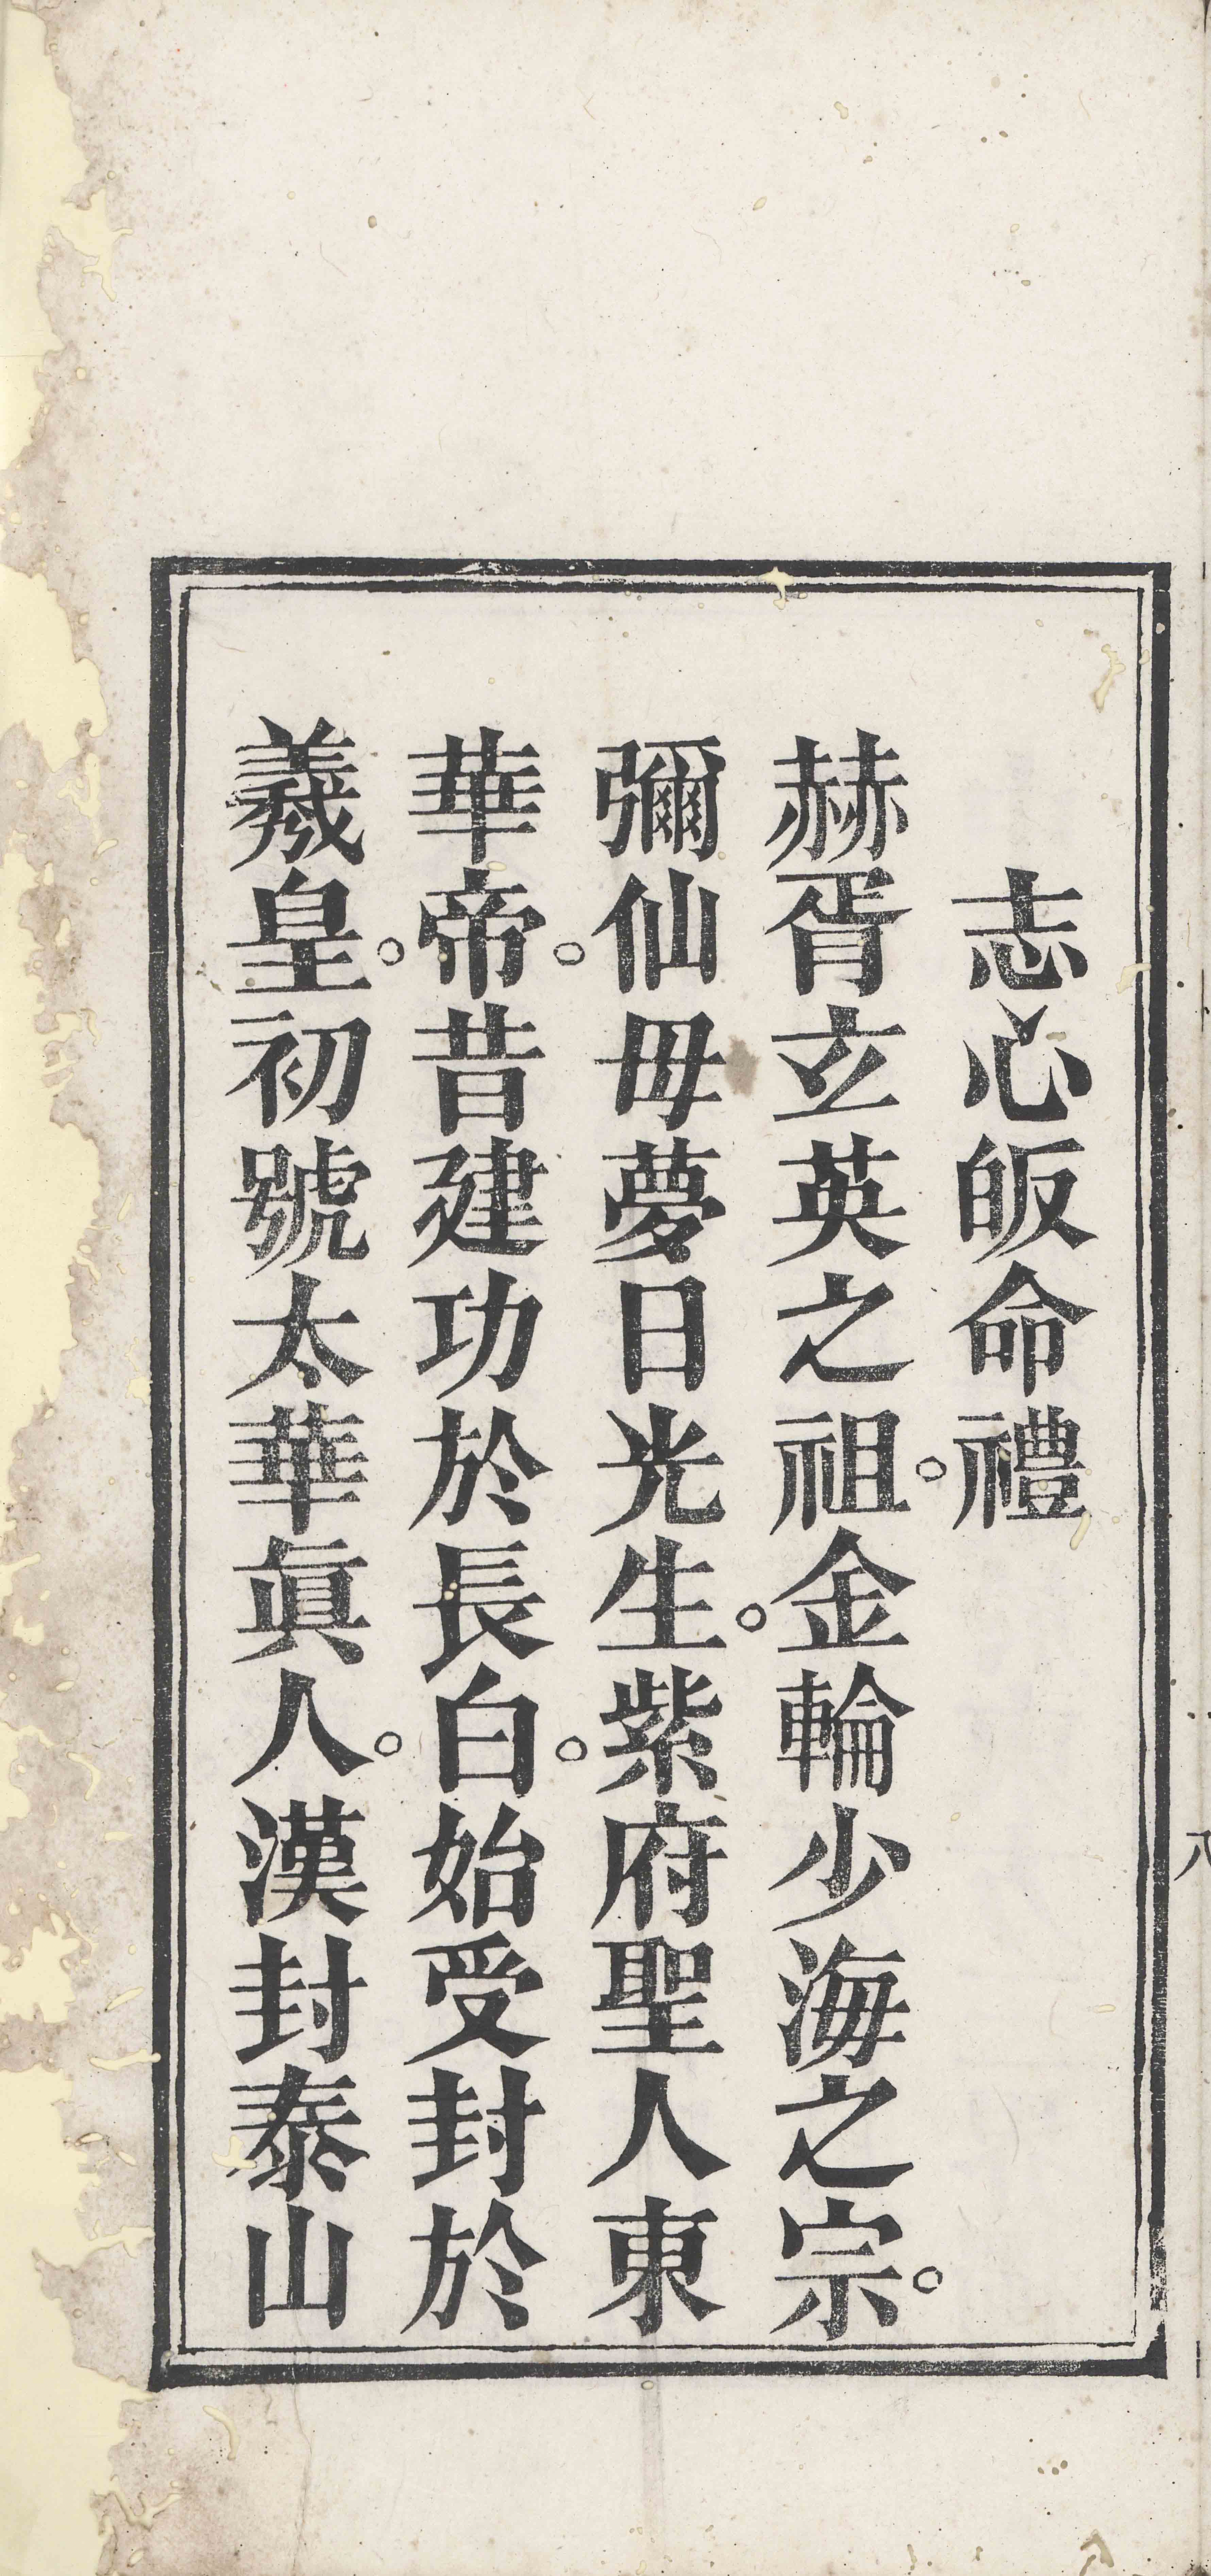 志心皈命禮
赫胥玄英之祖。金輪少海之宗。
彌仙毋夢日光生。紫府聖人東
華帝。昔建功於長白。始受封於
羲皇。初號太華眞人。漢封泰山
八